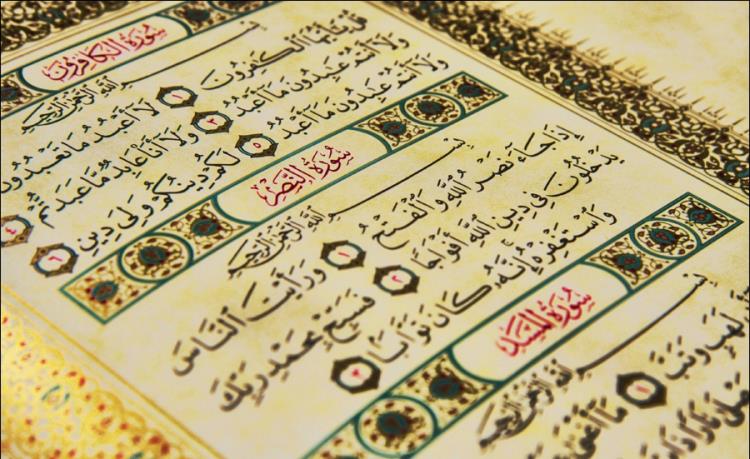 سُورَةُ الكَافِرُونَ
بِسْمِ ٱللَّهِ ٱلرَّحْمَٰنِ ٱلرَّحِيمِ
قُلْ يَٰٓأَيُّهَا ٱلْكَٰفِرُونَ ١ لَآ أَعْبُدُ مَا تَعْبُدُونَ
وَلَآ أَنتُمْ عَٰبِدُونَ مَآ أَعْبُدُ ٣ وَلَآ أَنَا۠ عَابِدٌ مَّا عَبَدتُّمْ ٤
وَلَآ أَنتُمْ عَٰبِدُونَ مَآ أَعْبُدُ ٥ لَكُمْ دِينُكُمْ وَلِىَ دِينِ ٦
سُورَةُ النَّصْرِ
بِسْمِ ٱللَّهِ ٱلرَّحْمَٰنِ ٱلرَّحِيمِ
إِذَا جَآءَ نَصْرُ ٱللَّهِ وَٱلْفَتْحُ ١ وَرَأَيْتَ ٱلنَّاسَ
يَدْخُلُونَ فِى دِينِ ٱللَّهِ أَفْوَاجًا ٢ فَسَبِّحْ بِحَمْدِ رَبِّكَ
وَٱسْتَغْفِرْهُ إِنَّهُۥ كَانَ تَوَّابًۢا ٣
سُورَةُ المَسَدِ
بِسْمِ ٱللَّهِ ٱلرَّحْمَٰنِ ٱلرَّحِيمِ
لَهَبٍ وَتَبَّ ١ مَآ أَغْنَىٰ